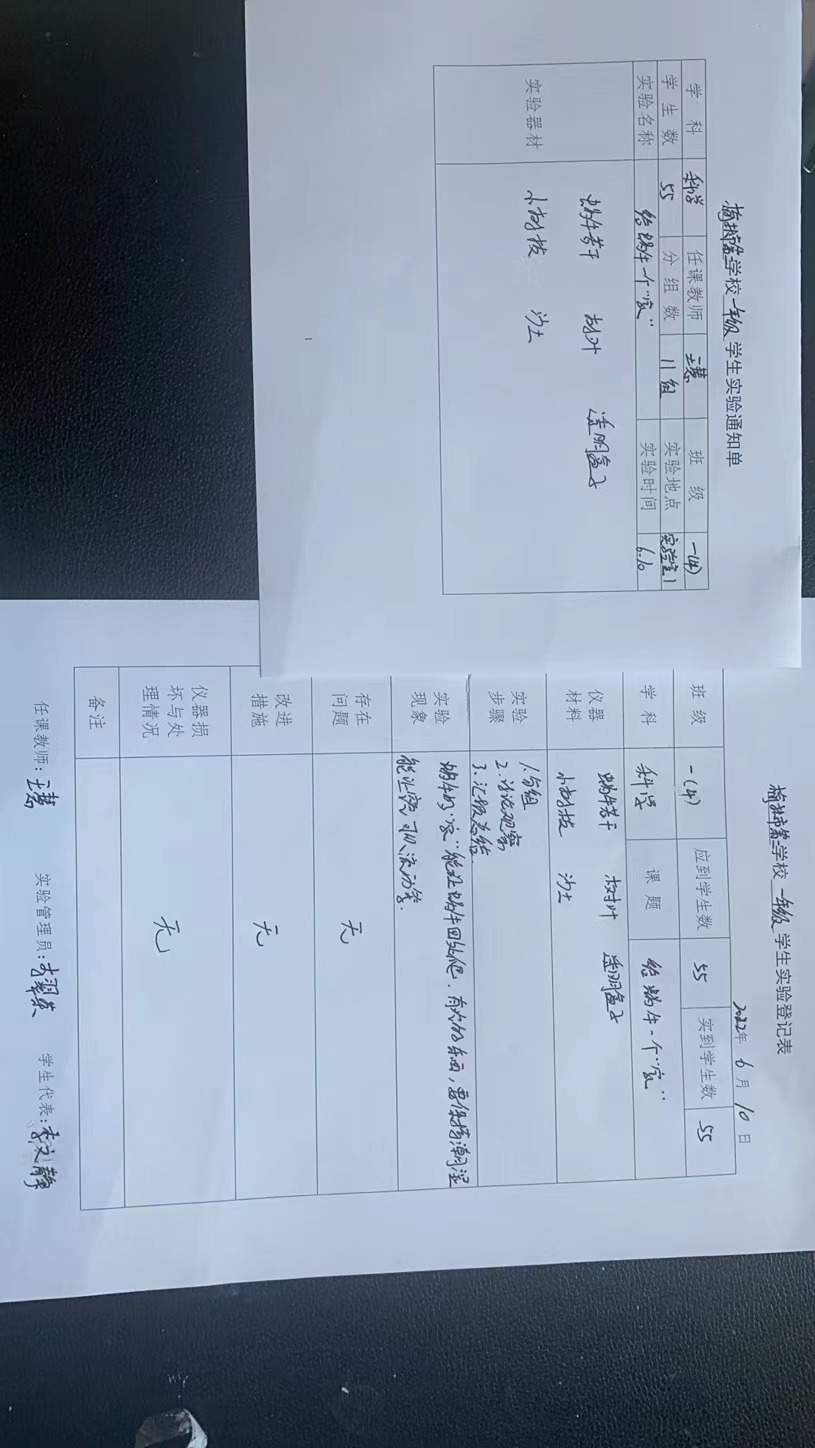 学校一年级学生实验通知单
学科 科学 任课教师 王慧 班级 一(4)
学生数 55 分组数 11组 实验地点 实验室1
实验名称 给蜗牛一个“家” 实验时间 6.10
实验器材
蜗牛若干 树叶 透明盒子
小树枝 沙土
学校一年级学生实验登记表
2022年6月10日
班级 一(4) 应到学生数 55 实到学生数 55
学科 科学 课题 给蜗牛一个“家”
仪器材料
蜗牛若干 树叶 透明盒子
小树枝 沙土
实验步骤
1.分组
2.讨论观察
3.汇报总结
实验现象
蜗牛的“家”能让蜗牛四处爬,有吃的东西,要保持潮湿
能让空气流动等.
存在问题 无
改进措施 无
仪器损坏与处理情况 无
备注
任课教师:王慧 实验管理员:李翠英 学生代表:李文静